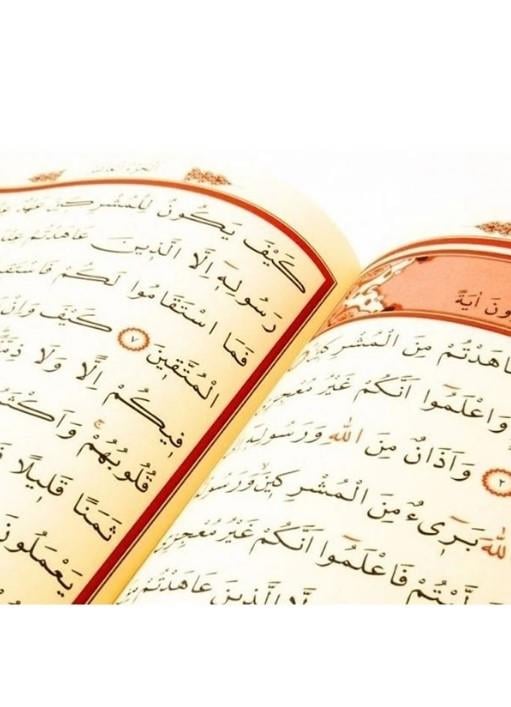 ونَ اٰيَةً
اهَدْتُمْ مِنَ الْمُشْرِكٖينَ
وَاعْلَمُٓوا اَنَّكُمْ غَيْرُ مُعْجِزِي
٢ وَاَذَانٌ مِنَ اللّٰهِ وَرَسُولِهٖٓ
اللّٰهَ بَرٖٓيءٌ مِنَ الْمُشْرِكٖينَ وَرَسُولُ
لَّيْتُمْ فَاعْلَمُٓوا اَنَّكُمْ غَيْرُ مُعْجِزِ
لَّا الَّذٖينَ عَاهَدْتُمْ
كَيْفَ يَكُونُ لِلْمُشْرِكٖينَ عَهْدٌ
رَسُولِهٖٓ اِلَّا الَّذٖينَ عَاهَدْتُمْ
فَمَا اسْتَقَامُوا لَكُمْ فَاسْتَقٖ
الْمُتَّقٖينَ ٧ كَيْفَ وَاِنْ
فٖيكُمْ اِلًّا وَلَا ذِمَّ
قُلُوبُهُمْ وَاَكْثَ
ثَمَنًا قَلٖيلًا فَ
يَعْمَلُونَ